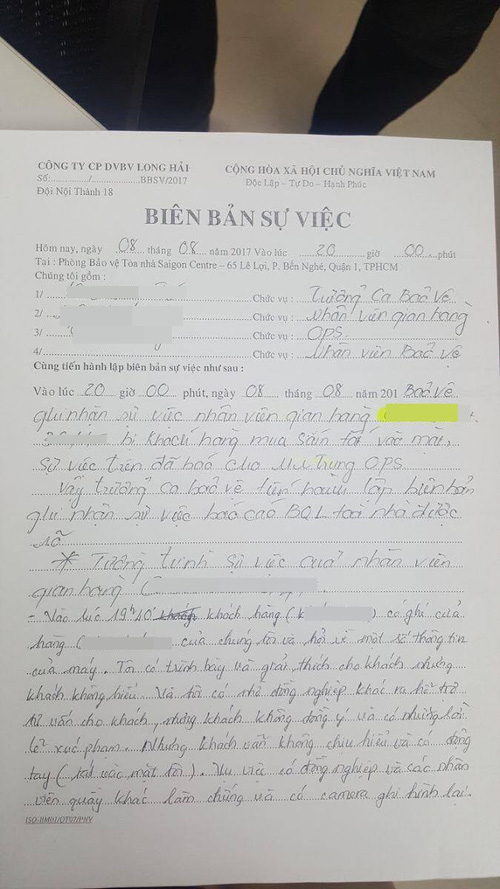 CÔNG TY CP DVBV LONG HẢI
CỘNG HÒA XÃ HỘI CHỦ NGHĨA VIỆT NAM
Số:............/.....................BBSV/2017
Độc Lập – Tự Do – Hạnh Phúc
Đội Nội Thành 18
BIÊN BẢN SỰ VIỆC
Hôm nay, ngày 08 tháng 08 năm 2017 Vào lúc 20 giờ 00 phút
Tại : Phòng Bảo vệ Tòa nhà Saigon Centre – 65 Lê Lợi, P. Bến Nghé, Quận 1, TPHCM
Chúng tôi gồm :
1/ Chức vụ : Trưởng Ca Bảo Vệ
2/ Chức vụ : Nhân viên gian hàng
3/ Chức vụ : OPS
4/ Chức vụ : Nhân viên Bảo Vệ
Cùng tiến hành lập biên bản sự việc như sau :
Vào lúc 20 giờ 00 phút, ngày 08 tháng 08 năm 201 Bảo Vệ
ghi nhận sự việc nhân viên gian hàng
bị khách hàng mua sắm tát vào mặt,
sự việc trên đã báo cho Mr. Trung OPS.
Vậy trưởng ca bảo vệ tiến hành lập biên bản
ghi nhận sự việc báo cáo BQL toà nhà được
rõ
* Tường trình sự việc của nhân viên
gian hàng
- Vào lúc 19h40 khách hàng ( ) có ghé cửa
hàng ( của chúng tôi và hỏi về một số thông tin
của máy. Tôi có trình bày và giải thích cho khách nhưng
khách không hiểu. Và tôi có nhờ đồng nghiệp khác ra hỗ trợ
tư vấn cho khách, nhưng khách không đồng ý và có những lời
lẽ xúc phạm. Nhưng khách vẫn không chịu hiểu và có động
tay ( tát vào mặt tôi ). Vụ việc có đồng nghiệp và các nhân
viên quầy khác làm chứng và có camera ghi hình lại.
ISO-BM01/QT07/PNV